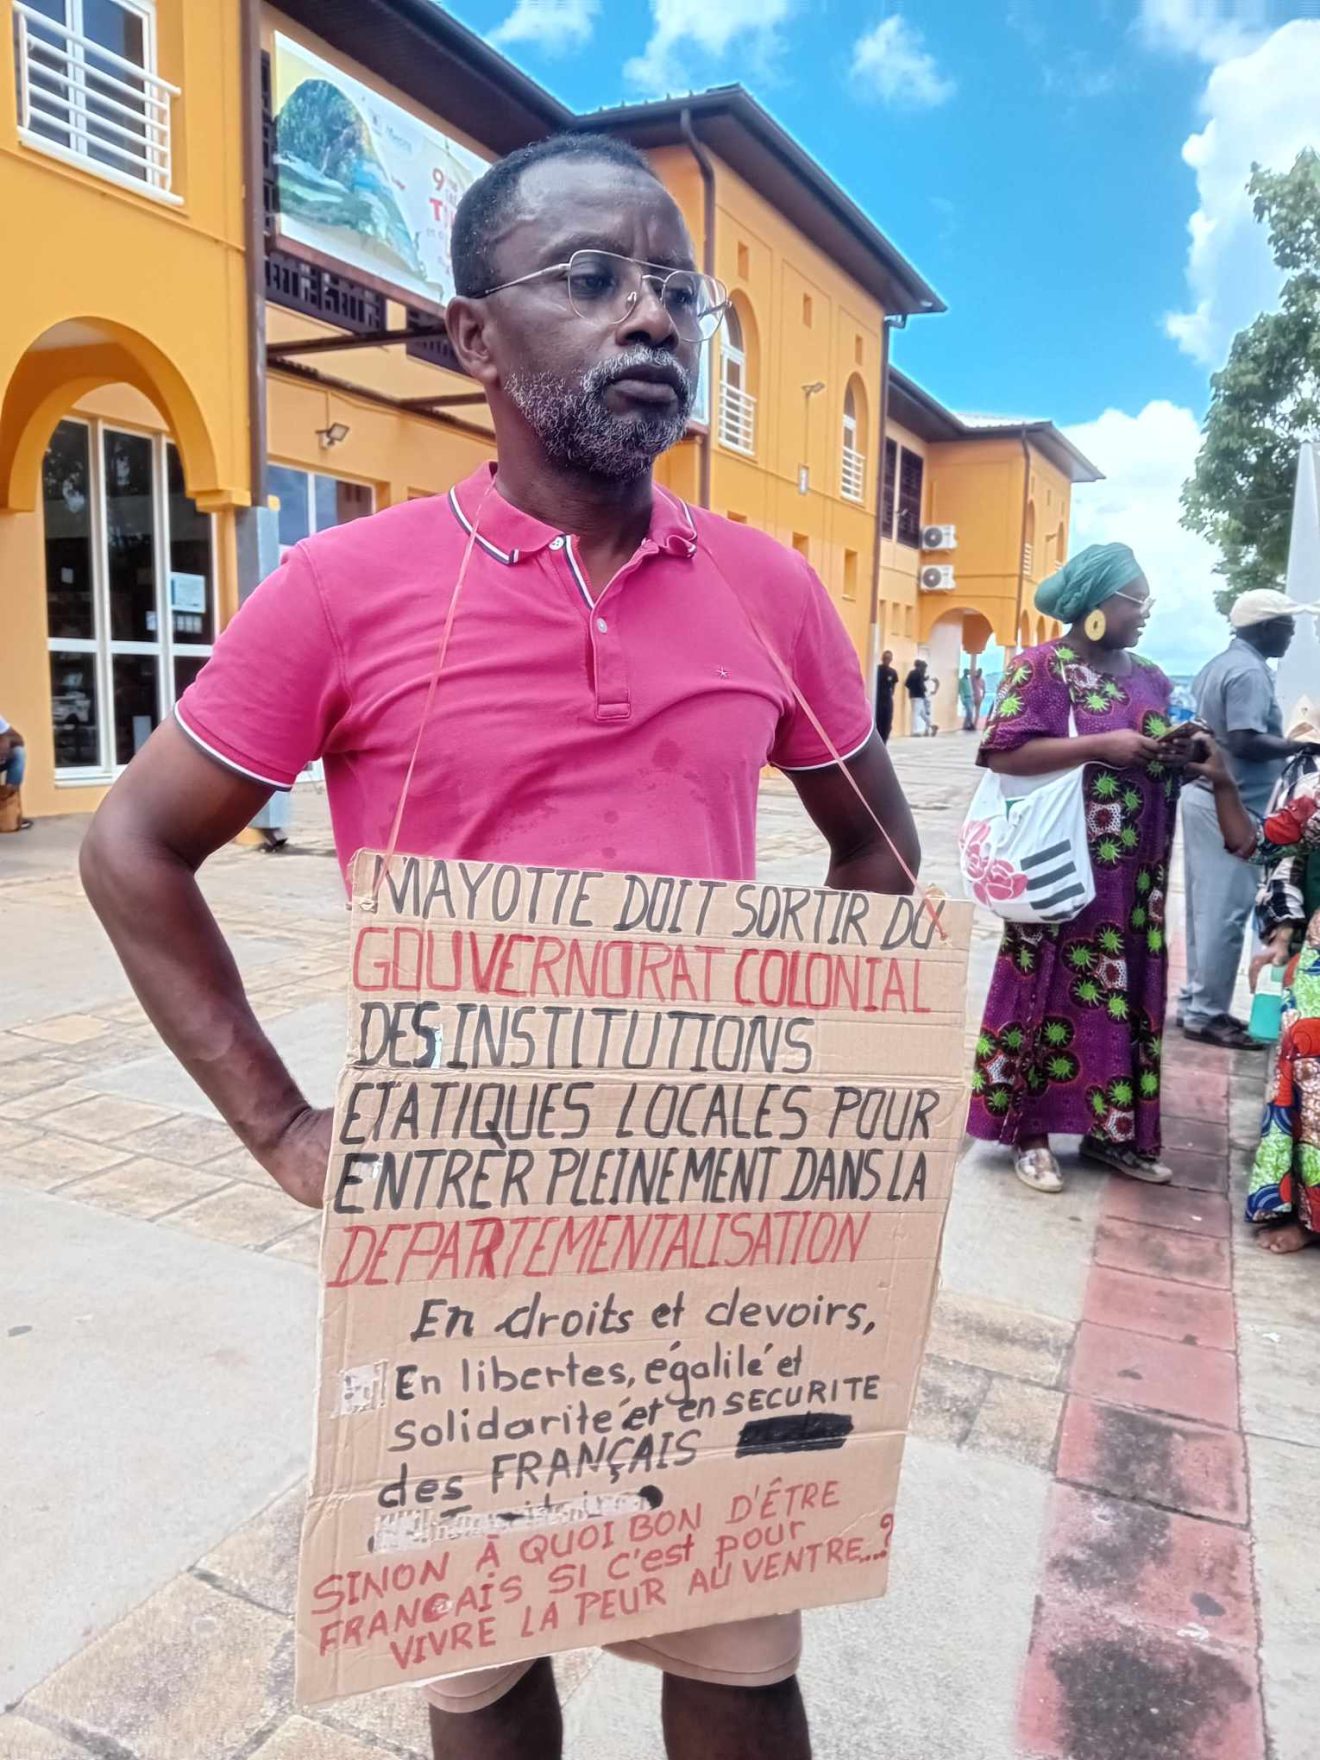 MAYOTTE DOIT SORTIR DU
GOUVERNORAT COLONIAL
DES INSTITUTIONS
ETATIQUES LOCALES POUR
ENTRER PLEINEMENT DANS LA
DEPARTEMENTALISATION
En droits et devoirs,
En libertes, égalité et
solidarité et en SECURITE
des FRANÇAIS
SINON À QUOI BON D'ÊTRE
FRANÇAIS SI C'est pour
VIVRE LA PEUR AU VENTRE...?
9